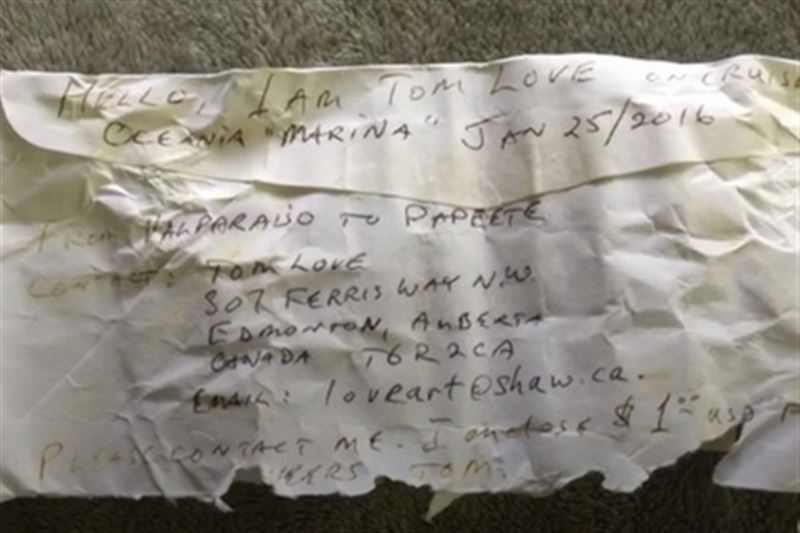 HELLO, I AM TOM LOVE ON CRUISE
OCEANIA "MARINA" JAN 25/2016
FROM VALPARAISO TO PAPEETE
CONTACT: TOM LOVE
307 FERRIS WAY N.W.
EDMONTON, ALBERTA
CANADA T6R2CA
EMAIL: loveart@shaw.ca.
PLEASE CONTACT ME. I enclose $1.00 USD
TOM.